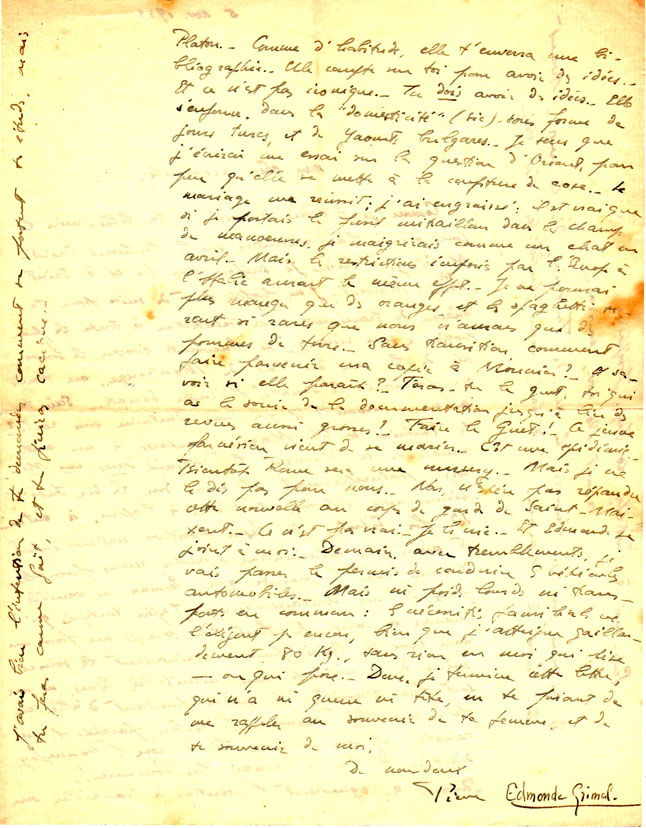 Platon. _ Comme d'habitude, elle t'enverra une bi-
bliographie. _ Elle compte sur toi pour avoir des idées. _
Et ce n'est pas ironique. _ Tu dois avoir des idées. _ Elle
s'enfonce dans la "domesticité" (sic) _ sous forme de
jours turcs, et de yaourts bulgares. _ Je sens que
j'écrirai un essai sur la question d'Orient, pour
peu qu'elle se mette à la confiture de rose. _ Le
mariage me réussit ; j'ai engraissé : il est vrai que
si je portais le fusil mitrailleur dans le champ
de manoeuvres, je maigrirais comme un chat en
avril. _ Mais les restrictions imposées par l'Europe à
l'Italie auront le même effet. _ Je ne pourrai
plus manger que des oranges, et les spaghetti se-
ront si rares que nous n'aurons que des
pommes de terre. _ Sans transition, comment
faire parvenir ma copie à Mounier ? Et sa-
voir si elle paraît ? Feras-tu le guet, toi qui
as le souci de la documentation jusqu'à lire des
revues aussi grosses ? Faire le Guet ! Ce jeune
vient de se marier. _ C'est une épidémie. _
Bientôt Rome sera une nursery. _ Mais je ne
le dis pas pour nous. _ Non, n'espère pas répandre
cette nouvelle au corps de garde de Saint-Mai-
xent. _ Ce n'est pas vrai. _ Je le nie. _ Et Edmonde se
joint à moi. _ Demain, avec tremblements, je
vais passer le permis de conduire les véhicules
automobiles. _ Mais ni poids lourds ni trans-
ports en commun : les nécessités familiales ne
l'exigent pas encore, bien que j'atteigne gaillar-
dement 80 Kg., sans rien en moi qui
_ ou qui pose. _ Donc, je termine cette lettre,
qui n'a ni queue ni tête, en te priant de
me rappeler au souvenir de ta femme, et de
te souvenir de moi,
De nous deux
Pierre Edmonde Grimal.
J'avais bien l'intention de te demander comment se passent tes études, mais
tu feras comme Guît, et tu